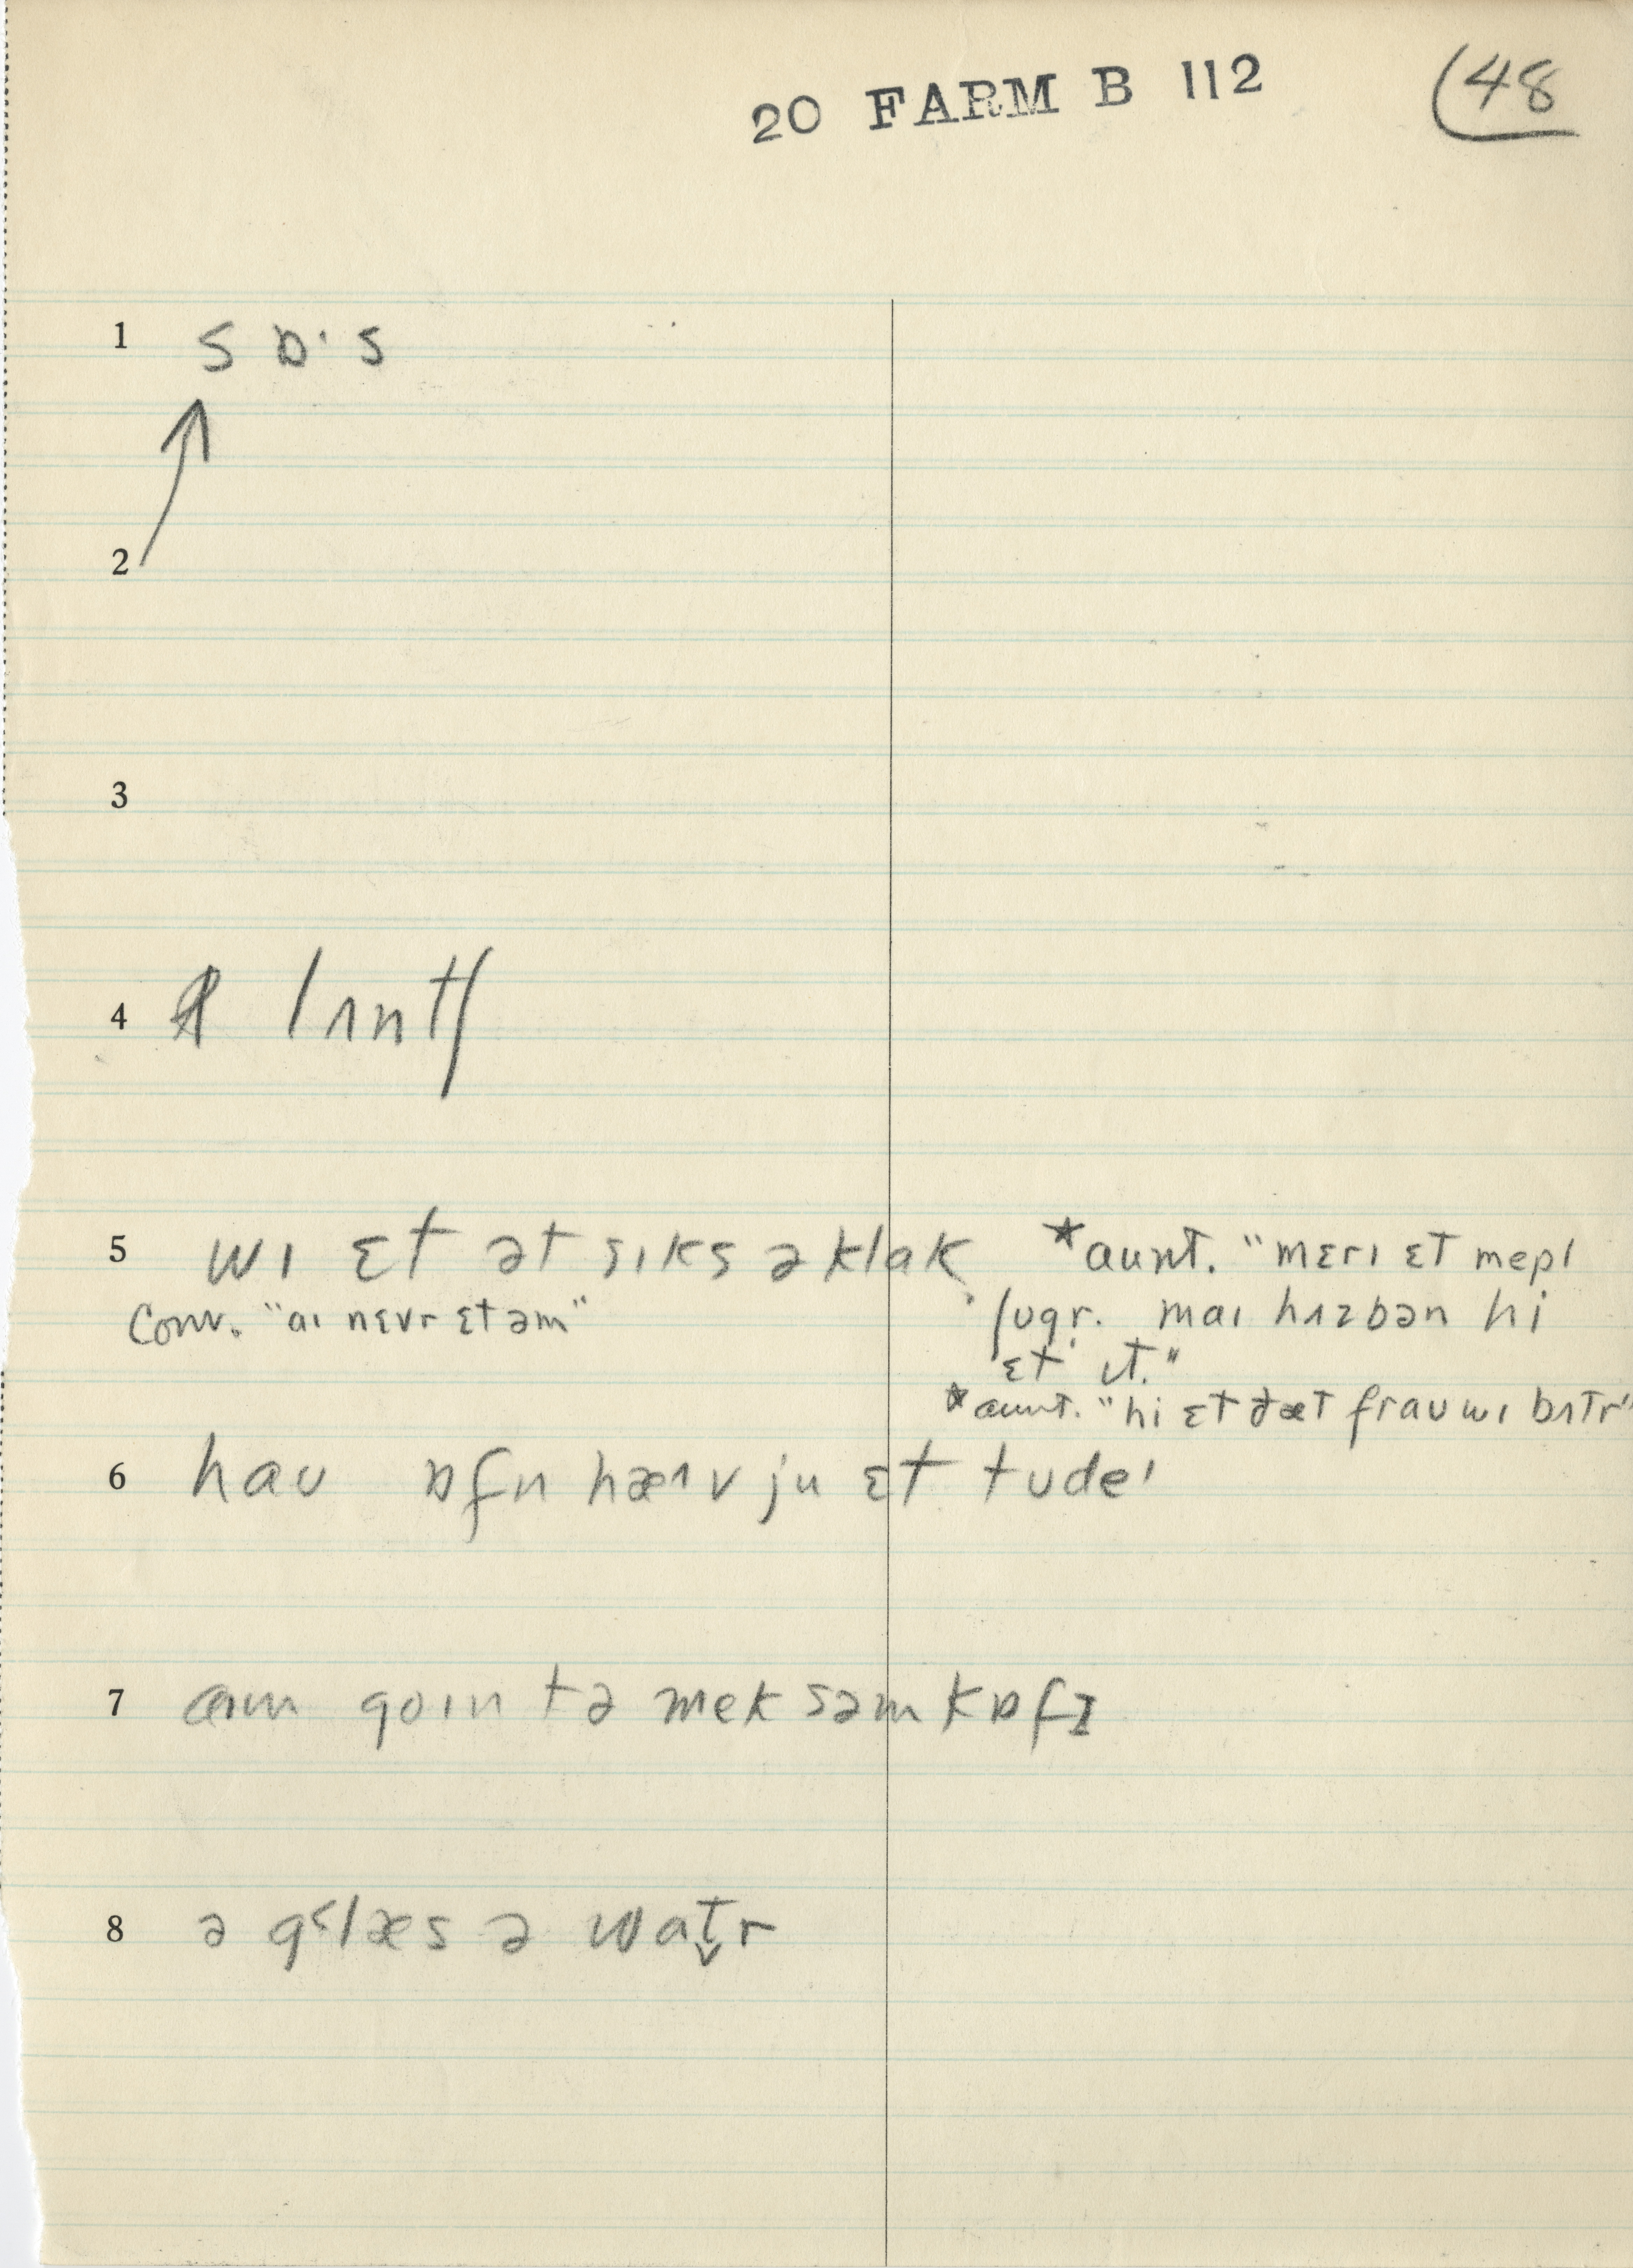 20 FARM B 112 (48
1 s ɒ· s
2
3
4 lʌntʃ
5 wɪ ɛt ət sɪks əklak *aunt. "mɛrɪ ɛt mepl
Conv. "aɪ nɛvr ɛt əm" ʃʊgr. maɪ hʌzbən hi
ɛt ɪt."
*aunt. "hi ɛt ðæt fraʊ wɪ bɪtr"
6 haʊ ɒfn hæɪv ju ɛt tʊdeɪ
7 aɪm goɪn tə mek səm kɒfɪ
8 ə g˂læs ə wat̬r